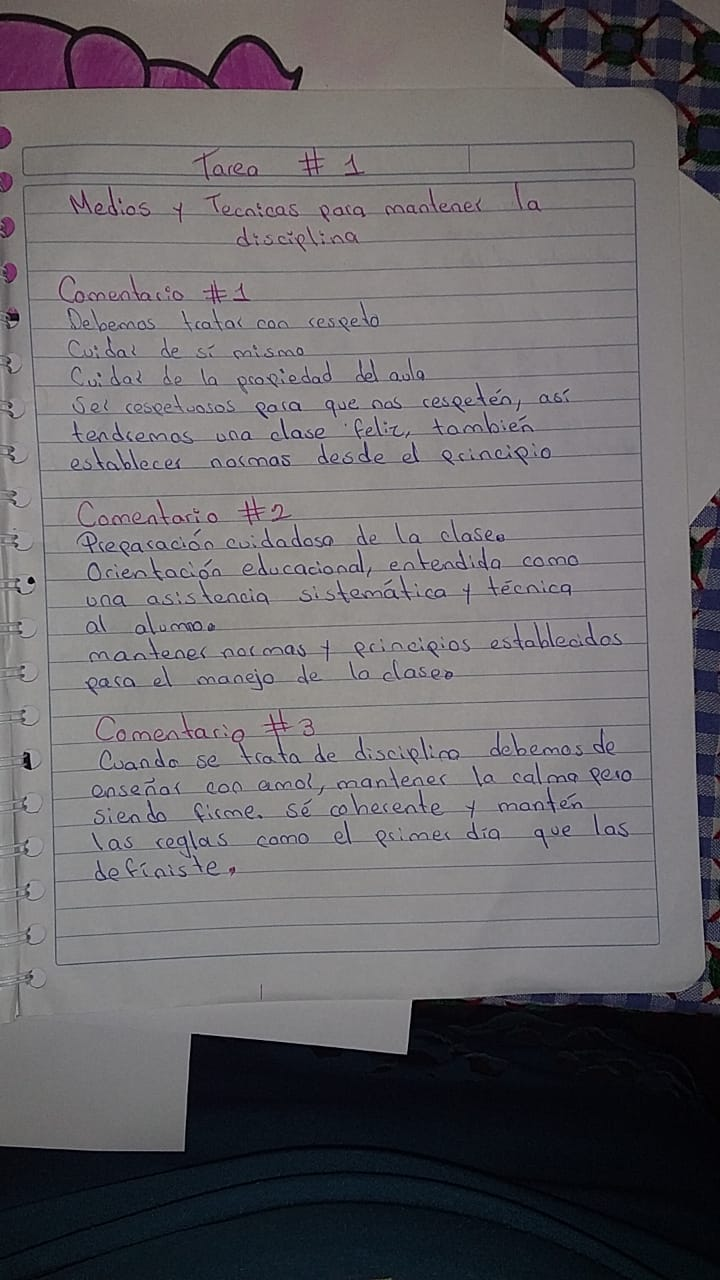 Tarea # 1
Medios y Tecnicas para mantener la
disciplina
Comentario #1
Debemos tratar con respeto
Cuidar de sí mismo
Cuidar de la propiedad del aula
Ser respetuosos para que nos respetén, así
tendremos una clase feliz, también
establecer normas desde el principio
Comentario #2
Preparación cuidadosa de la clase.
Orientación educacional, entendida como
una asistencia sistemática y técnica
al alumno.
mantener normas y principios establecidos
para el manejo de la clase.
Comentario #3
Cuando se trata de disciplina debemos de
enseñar con amor, mantener la calma pero
siendo firme. sé coherente y mantén
las reglas como el primer día que las
definiste.